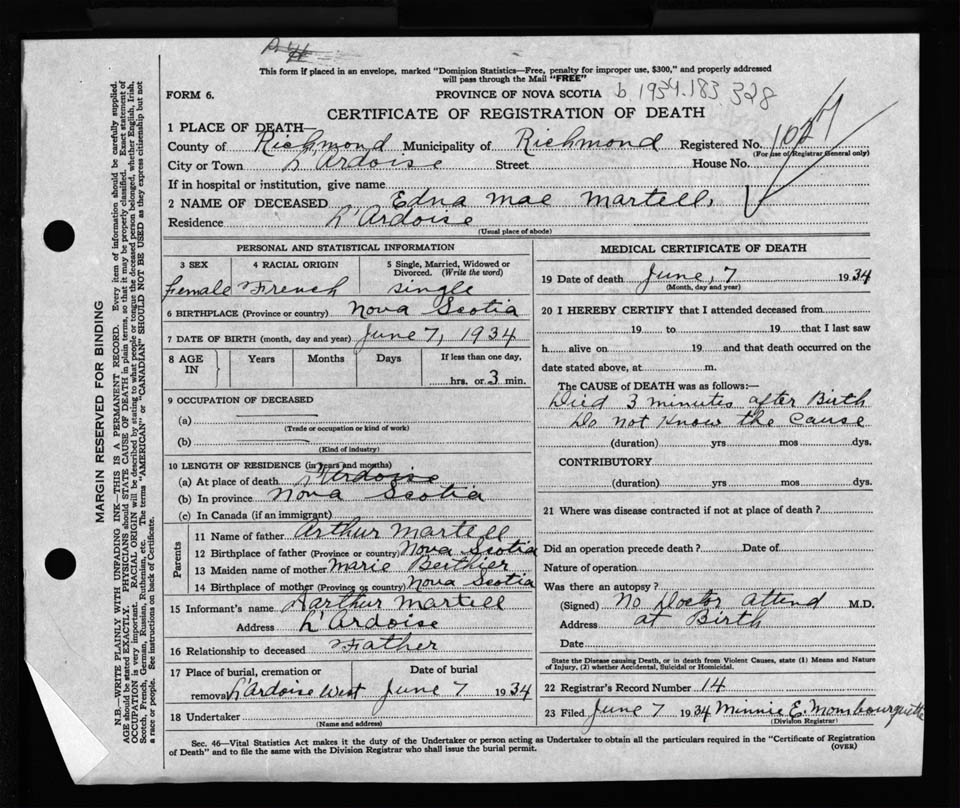 This form if placed in an envelope, marked "Dominion Statistics—Free, penalty for improper use, $300," and properly addressed
will pass through the Mail "FREE"
FORM 6.
PROVINCE OF NOVA SCOTIA b. 1934.183 328
CERTIFICATE OF REGISTRATION OF DEATH
1 PLACE OF DEATH—
County of Richmond Municipality of Richmond Registered No. 1027
(For use of Registrar General only)
City or Town L'Ardoise Street House No.
If in hospital or institution, give name
2 NAME OF DECEASED Edna Mae Martell.
Residence L'Ardoise
(Usual place of abode)
MARGIN RESERVED FOR BINDING
N.B.—WRITE PLAINLY WITH UNFADING INK—THIS IS A PERMANENT RECORD. Every item of information should be carefully supplied.
AGE should be stated EXACTLY. PHYSICIANS should STATE CAUSE OF DEATH in plain terms, so that it may be properly classified. Exact statement of
OCCUPATION is very important. RACIAL ORIGIN will be described by stating to what people or tongue the deceased person belonged, whether English, Irish,
Scotch, French, German, Russian, Ruthenian, etc. The terms "AMERICAN" or "CANADIAN" SHOULD NOT BE USED as they express citizenship but not
a race or people. See instructions on back of Certificate.
PERSONAL AND STATISTICAL INFORMATION
3 SEX
4 RACIAL ORIGIN
5 Single, Married, Widowed or
Divorced. (Write the word)
Female French single
6 BIRTHPLACE (Province or country) Nova Scotia
7 DATE OF BIRTH (month, day and year) June 7, 1934
8 AGE
IN
Years Months Days If less than one day,
hrs. or 3 min.
9 OCCUPATION OF DECEASED
(a)
(Trade or occupation or kind of work)
(b)
(Kind of industry)
10 LENGTH OF RESIDENCE (in years and months)
(a) At place of death L'Ardoise
(b) In province Nova Scotia
(c) In Canada (if an immigrant)
Parents
11 Name of father Arthur Martell
12 Birthplace of father (Province or country) Nova Scotia
13 Maiden name of mother Marie Berthier
14 Birthplace of mother (Province or country) Nova Scotia
15 Informant's name Arthur Martell
Address L'Ardoise
16 Relationship to deceased Father
17 Place of burial, cremation or Date of burial
removal L'Ardoise West June 7 1934
18 Undertaker
(Name and address)
MEDICAL CERTIFICATE OF DEATH
19 Date of death June, 7 1934
(Month, day and year)
20 I HEREBY CERTIFY that I attended deceased from
19 to 19 that I last saw
h alive on 19 and that death occurred on the
date stated above, at m.
The CAUSE of DEATH was as follows:—
Died 3 minutes after Birth
Do not Know the Cause
(duration) yrs mos dys.
CONTRIBUTORY
(duration) yrs mos dys.
21 Where was disease contracted if not at place of death?
Did an operation precede death? Date of
Nature of operation
Was there an autopsy?
(Signed) No Doctor Attend M.D.
Address at Birth
Date
State the Disease causing Death, or in death from Violent Causes, state (1) Means and Nature
of Injury, (2) whether Accidental, Suicidal or Homicidal.
22 Registrar's Record Number 14
23 Filed June 7 1934 Minnie E. Mombourquette
(Division Registrar)
Sec. 46—Vital Statistics Act makes it the duty of the Undertaker or person acting as Undertaker to obtain all the particulars required in the "Certificate of Registration
of Death" and to file the same with the Division Registrar who shall issue the burial permit.
(OVER)